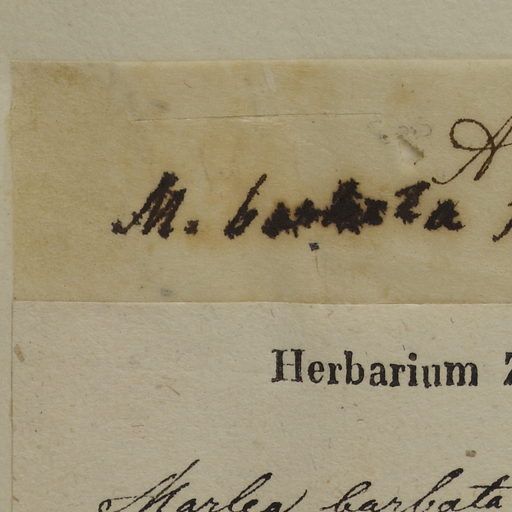 A
M. barbata
Herbarium
Marlea barbata